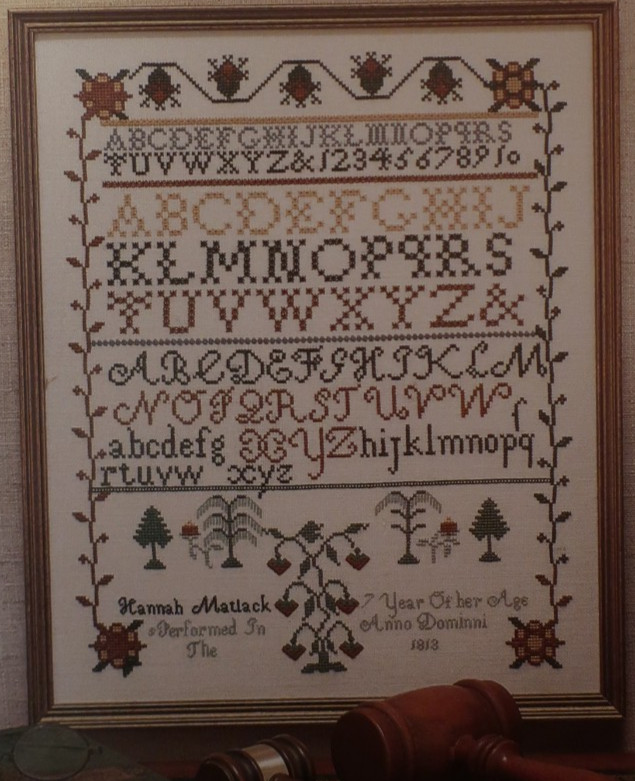 ABCDEFGHIJKLMNOPqRS
TUVWXYZ&12345678910
ABCDEFGHIJ
KLMNOPqRS
TUVWXYZ&
ABCDEFGHIJKLM
NOPQRSTUVW
abcdefg XYZ hijklmnopq
rſtuvw xyz
Hannah Matlack 7 Year Of her Age
Performed In Anno Dominni
The 1813